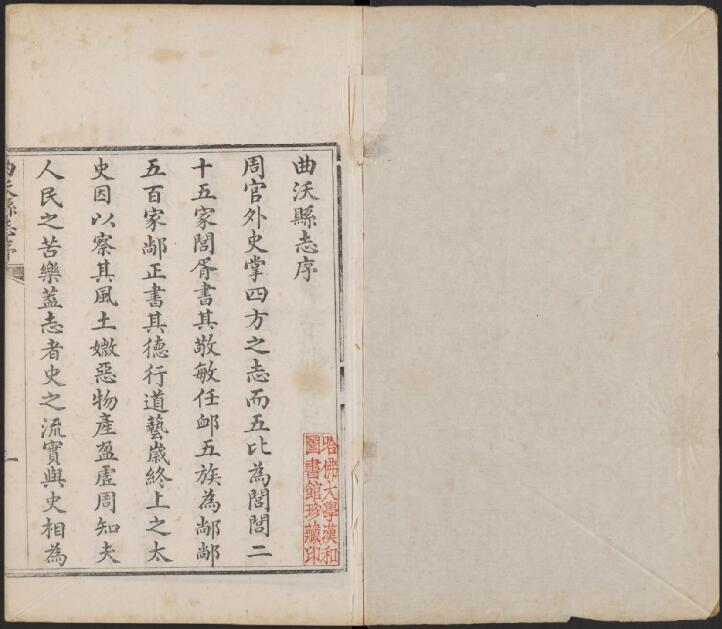 曲沃縣志序
周官外史掌四方之志而五比為閭閭二
十五家閭胥書其敬敏任卹五族為䣊䣊
五百家䣊正書其徳行道藝歲終上之太
史因以察其風土媺惡物產盈虛周知夫
人民之苦樂葢志者史之流實與史相為
曲沃縣志序
一
哈佛大學漢和
圖書館珍藏印